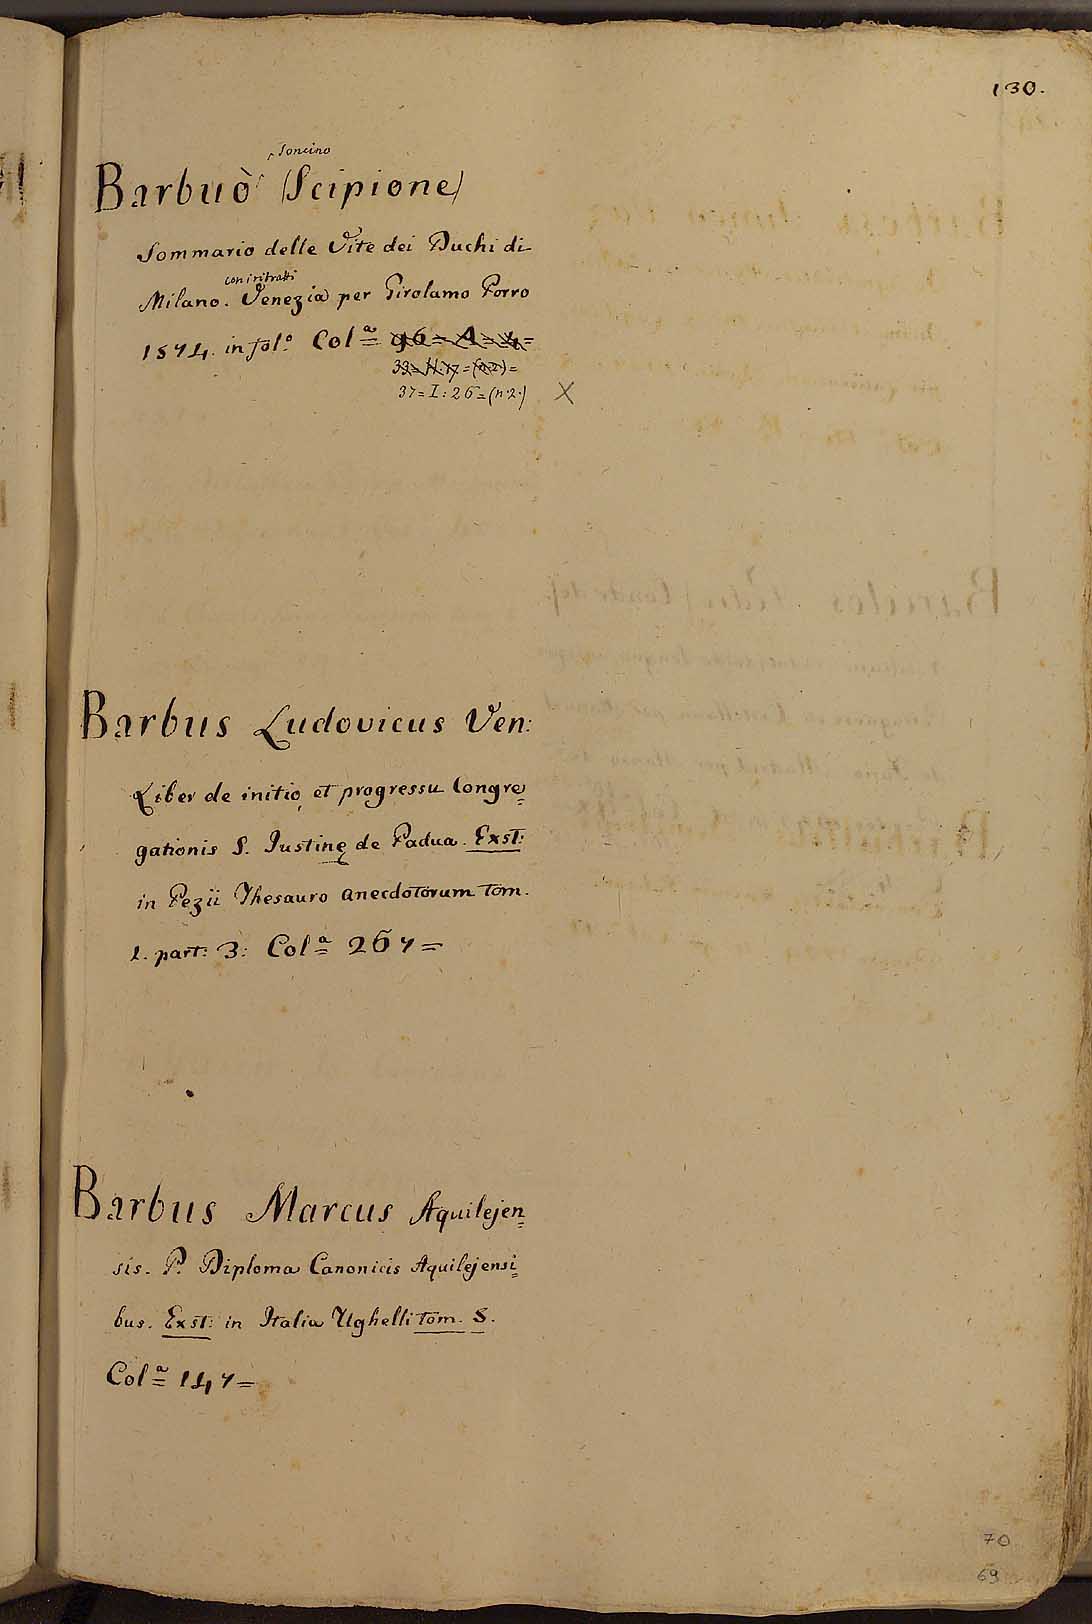 130.
Soncino
Barbuò (Scipione)
Sommario delle Vite dei Duchi di
con i ritratti
Milano. Venezia per Girolamo Porro
1574. in fol.º Col.ª 96 = A = 4 =
37 = I : 26 = (n. 2.) X
Barbus Ludovicus Ven:
Liber de initio, et progressu Congre=
gationis S. Justinę de Padua. Exst:
in Pezii Thesauro anecdotorum tom.
2. part: 3: Col.ª 267 =
Barbus Marcus Aquilejen=
sis. P. Diploma Canonicis Aquilejensi=
bus. Exst: in Italia Ughelli tom. 5.
Col.ª 147 =
70
69